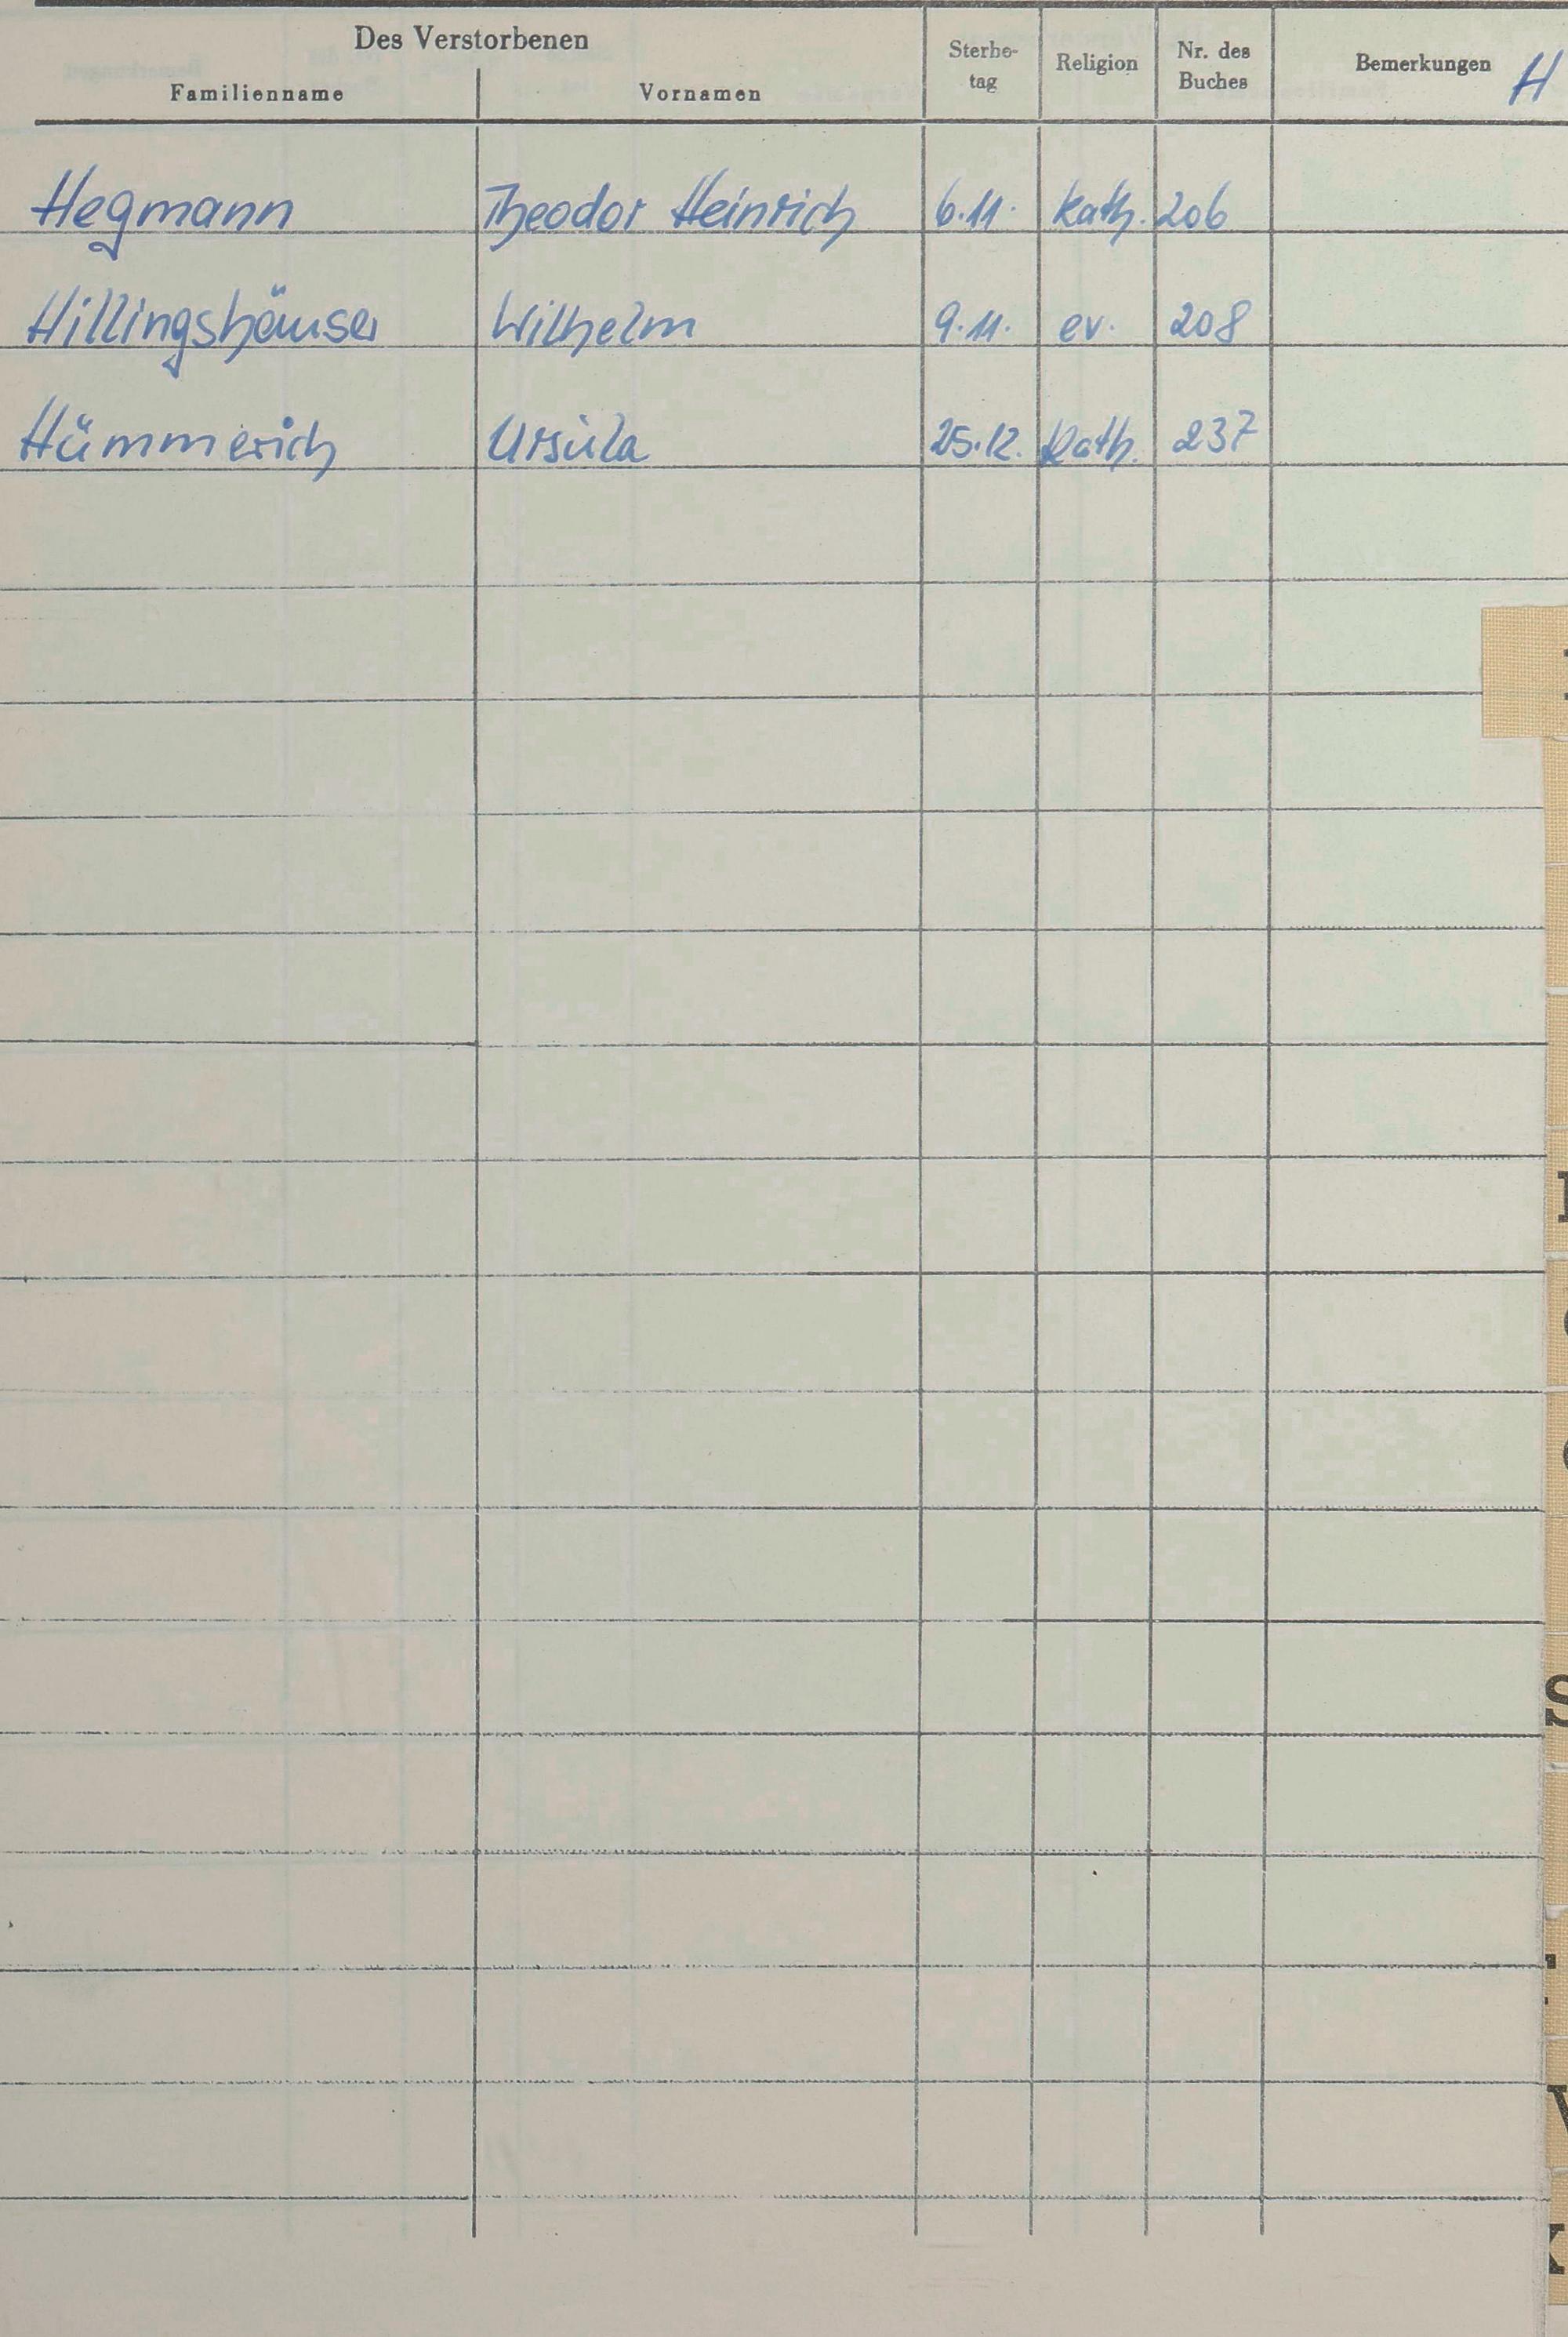 Des Verstorbenen
Familienname Vornamen Sterbe-
tag Religion Nr. des
Buches Bemerkungen H
Hegmann Theodor Heinrich 6.11. kath. 206
Hillingshäuser Wilhelm 9.11. ev. 208
Hümmerich Ursula 25.12. Kath. 237
S